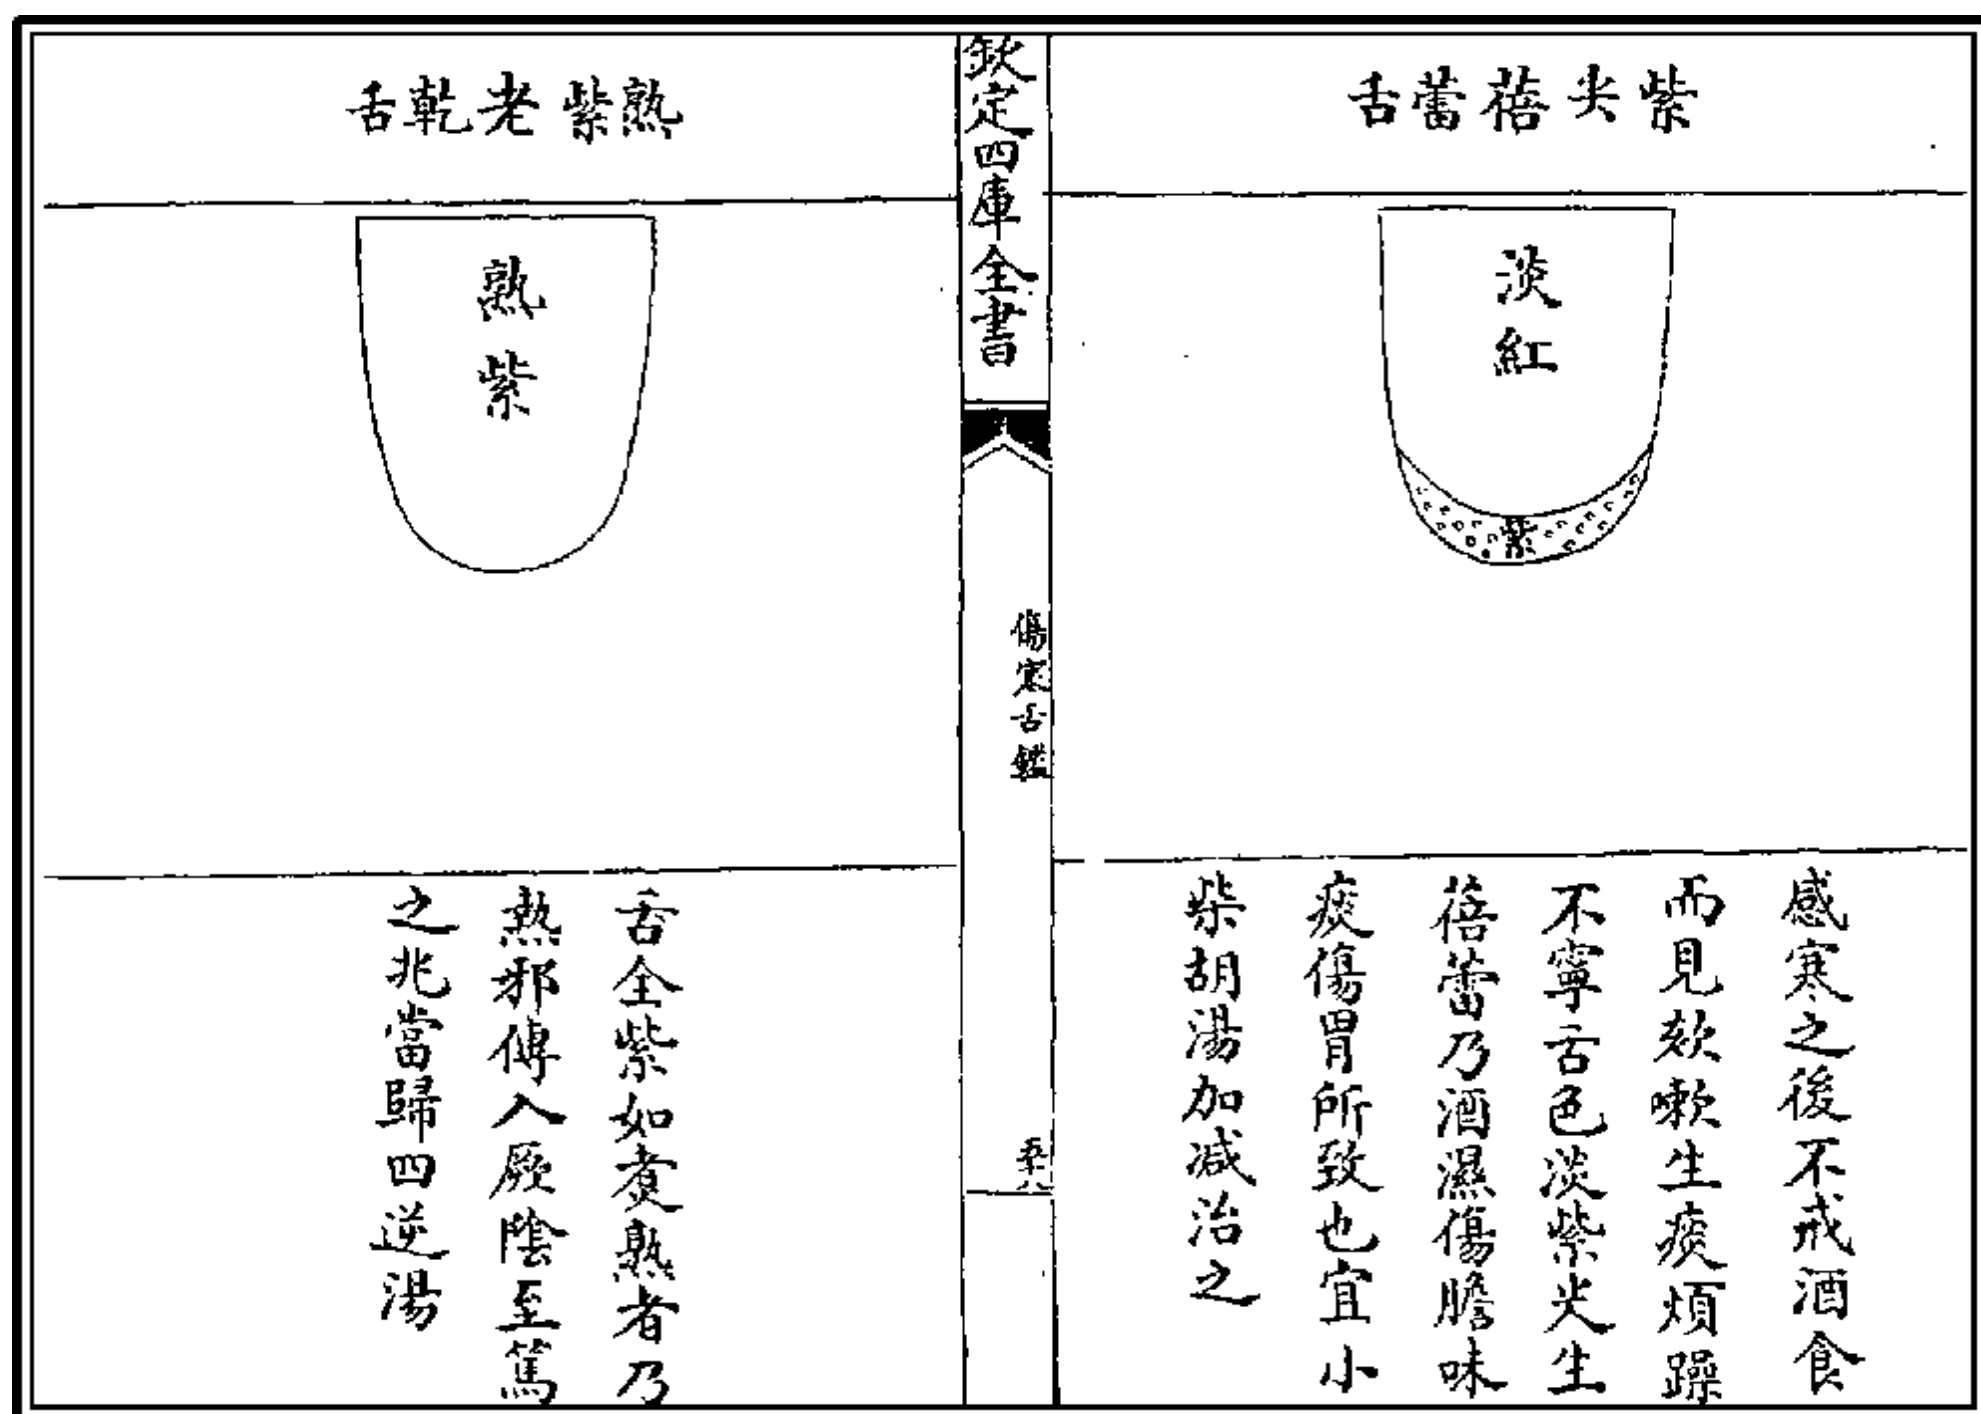 紫尖蓓蕾舌
淡紅
紫
感寒之後不戒酒食
而見欬嗽生痰煩躁
不寧舌色淡紫尖生
蓓蕾乃酒濕傷膽味
痰傷胃所致也宜小
柴胡湯加減治之
欽定四庫全書
傷寒舌鑑
五十八
熟紫老乾舌
熟紫
舌全紫如煑熟者乃
熱邪傳入厥陰至篤
之兆當歸四逆湯